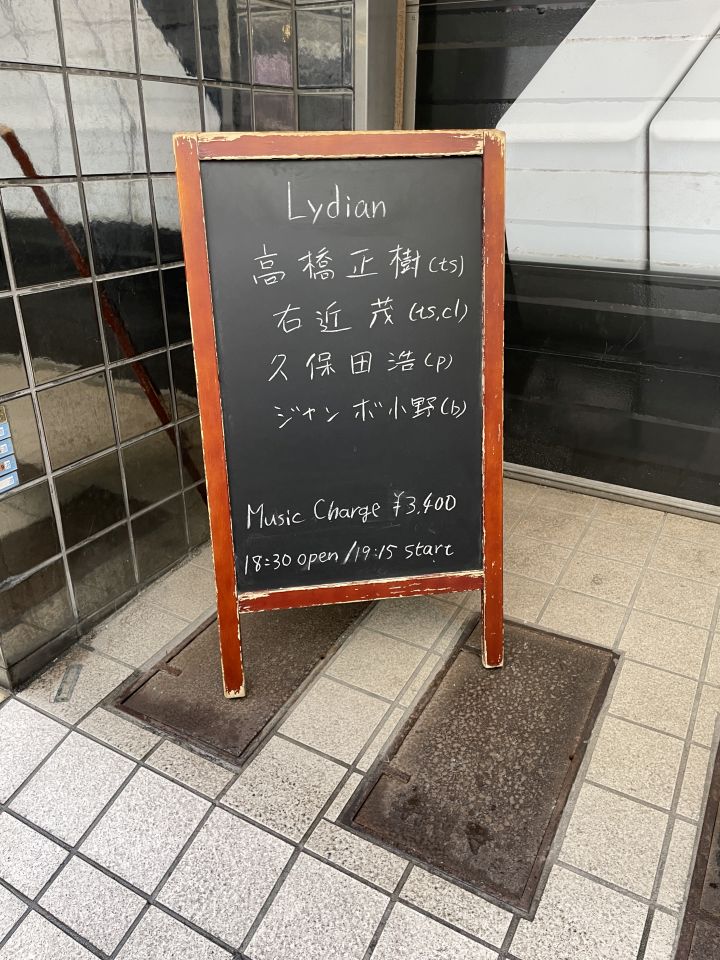 Lydian
高橋正樹(ts)
右近 茂(ts,cl)
久保田浩(p)
ジャンボ小野(b)
Music Charge ¥3.400
18:30 open/19:15 start